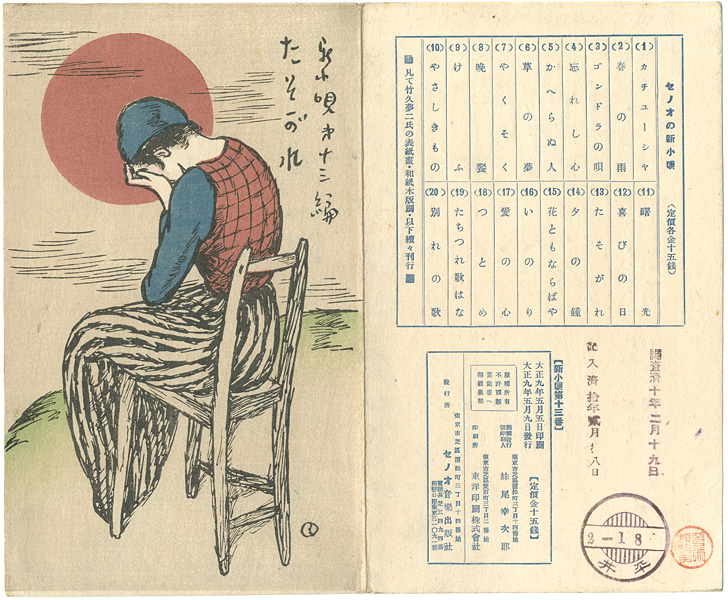 新小唄第十三編
たそがれ
セノオの新小唄
(定價各金十五錢)
(1) カチューシャ
(2) 春の雨
(3) ゴンドラの唄
(4) 忘れし心
(5) かへらぬ人
(6) 草の夢
(7) やくそく
(8) 晩鬢
(9) けふ
(10) やさしきもの
(11) 曙光
(12) 喜びの日
(13) たそがれ
(14) 夕の鐘
(15) 花ともならばや
(16) いのり
(17) 愛の心
(18) つとめ
(19) たちつれ歌はな
(20) 別れの歌
凡て竹久夢二氏の表紙畫・和紙木版刷・以下續々刊行
【新小唄第十三番】
【定價金十五錢】
大正九年五月五日印刷
大正九年五月九日發行
版權所有
不許複製
東京市芝區濱松町三丁目十四番地
妹尾幸次郎
印刷所
東洋印刷株式會社
東京市芝區濱松町三丁目十四番地
發行所
セノオ音樂出版社
調査濟十年二月十九日
記入濟拾年貳月廿八日
2-1 8